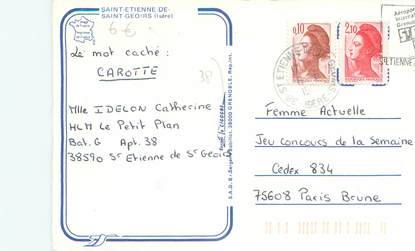 SAINT-ETIENNE-DE-
SAINT-GEOIRS (Isère)
6 €
Le mot caché :
CAROTTE
38
Mlle IDELON Catherine
HLM Le Petit Plan
Bat. G Apt. 38
38590 St Etienne de St Geoirs
0,10
2,10
ST ETIENNE
ISERE
Femme Actuelle
Jeu concours de la Semaine
Cedex 834
75608 Paris Brune